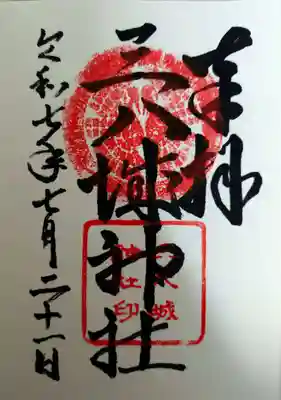 奉拝
三八城神社
令和七年七月二十一日
三八城
神社印